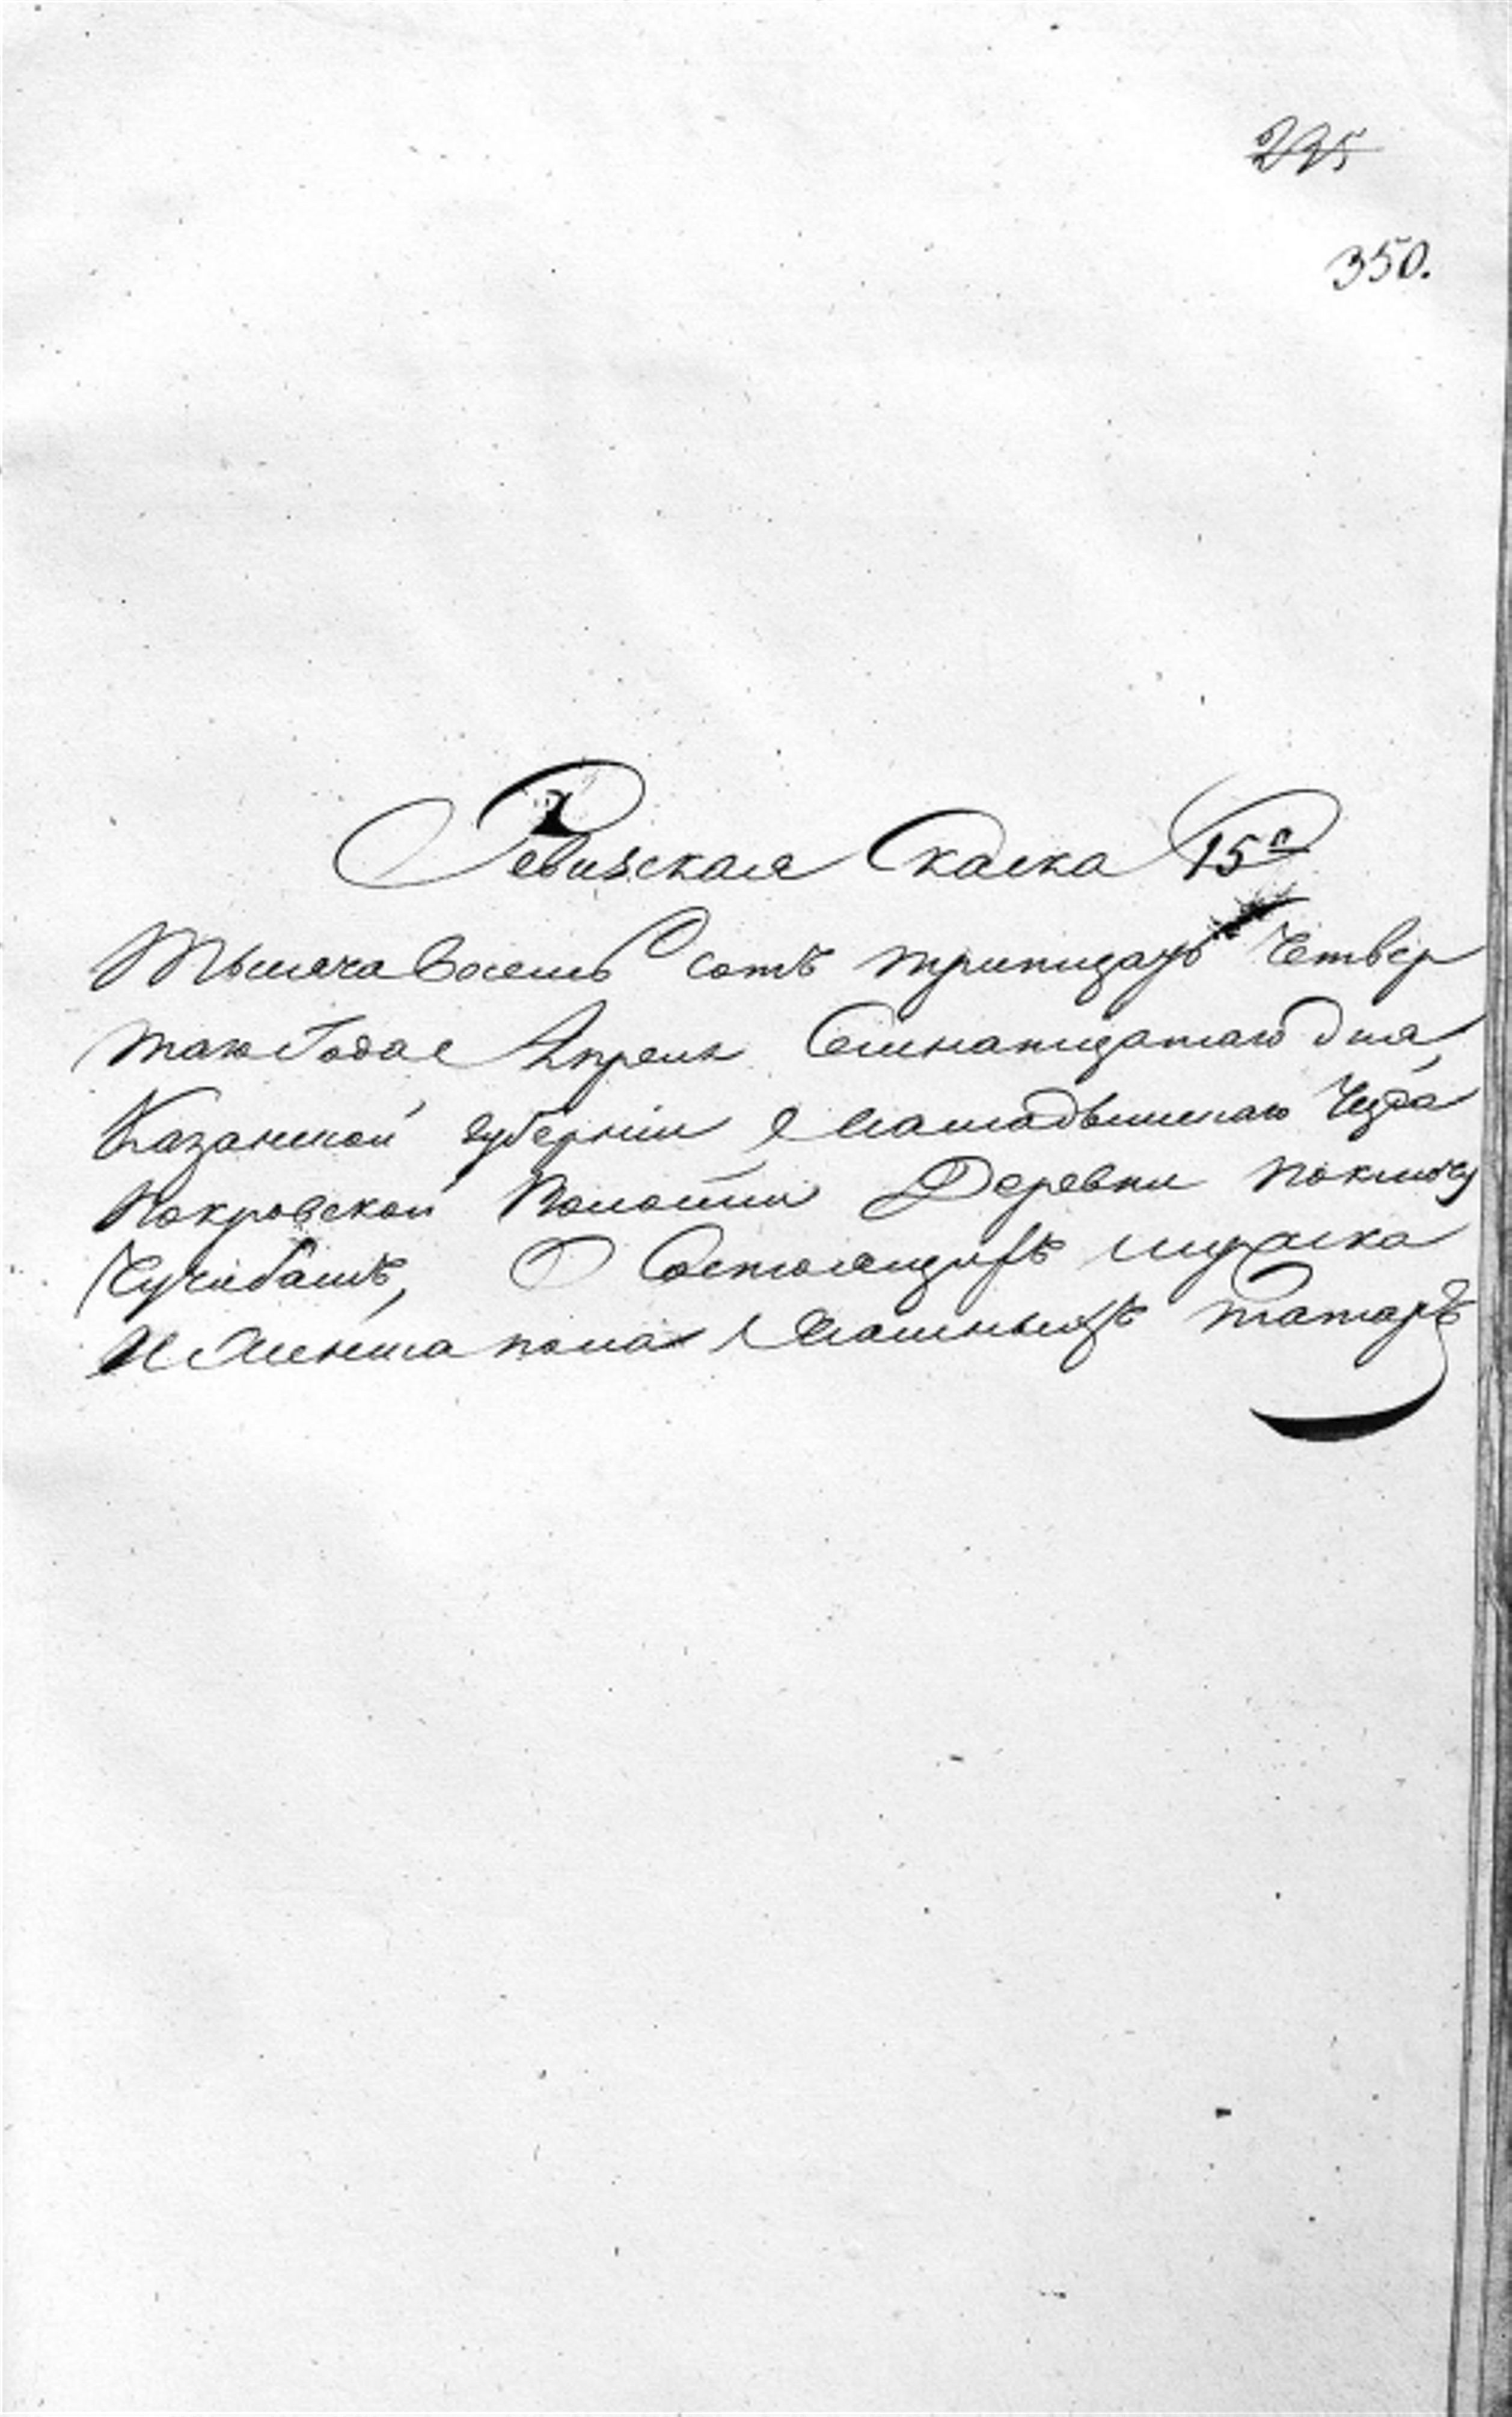 225
350.
Ревизская Скаска 15я
Тысяча восемь сотъ тритцать Четвер
таго Года Апреля Семнатцатаго дня,
Казанской губернiи Мамадышскаго Уезда
Покровской Волости Деревни
О Состоящихъ мужеска
И Женска пола Ясашныхъ татаръ